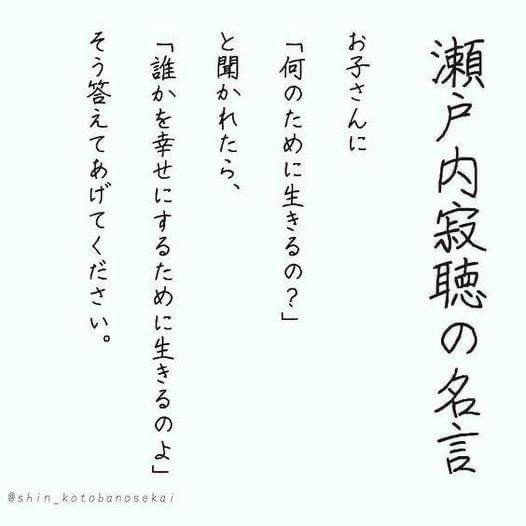 瀬戸内寂聴の名言
お子さんに
「何のために生きるの?」
と聞かれたら、
「誰かを幸せにするために生きるのよ」
そう答えてあげてください。
@shin_kotobanosekai